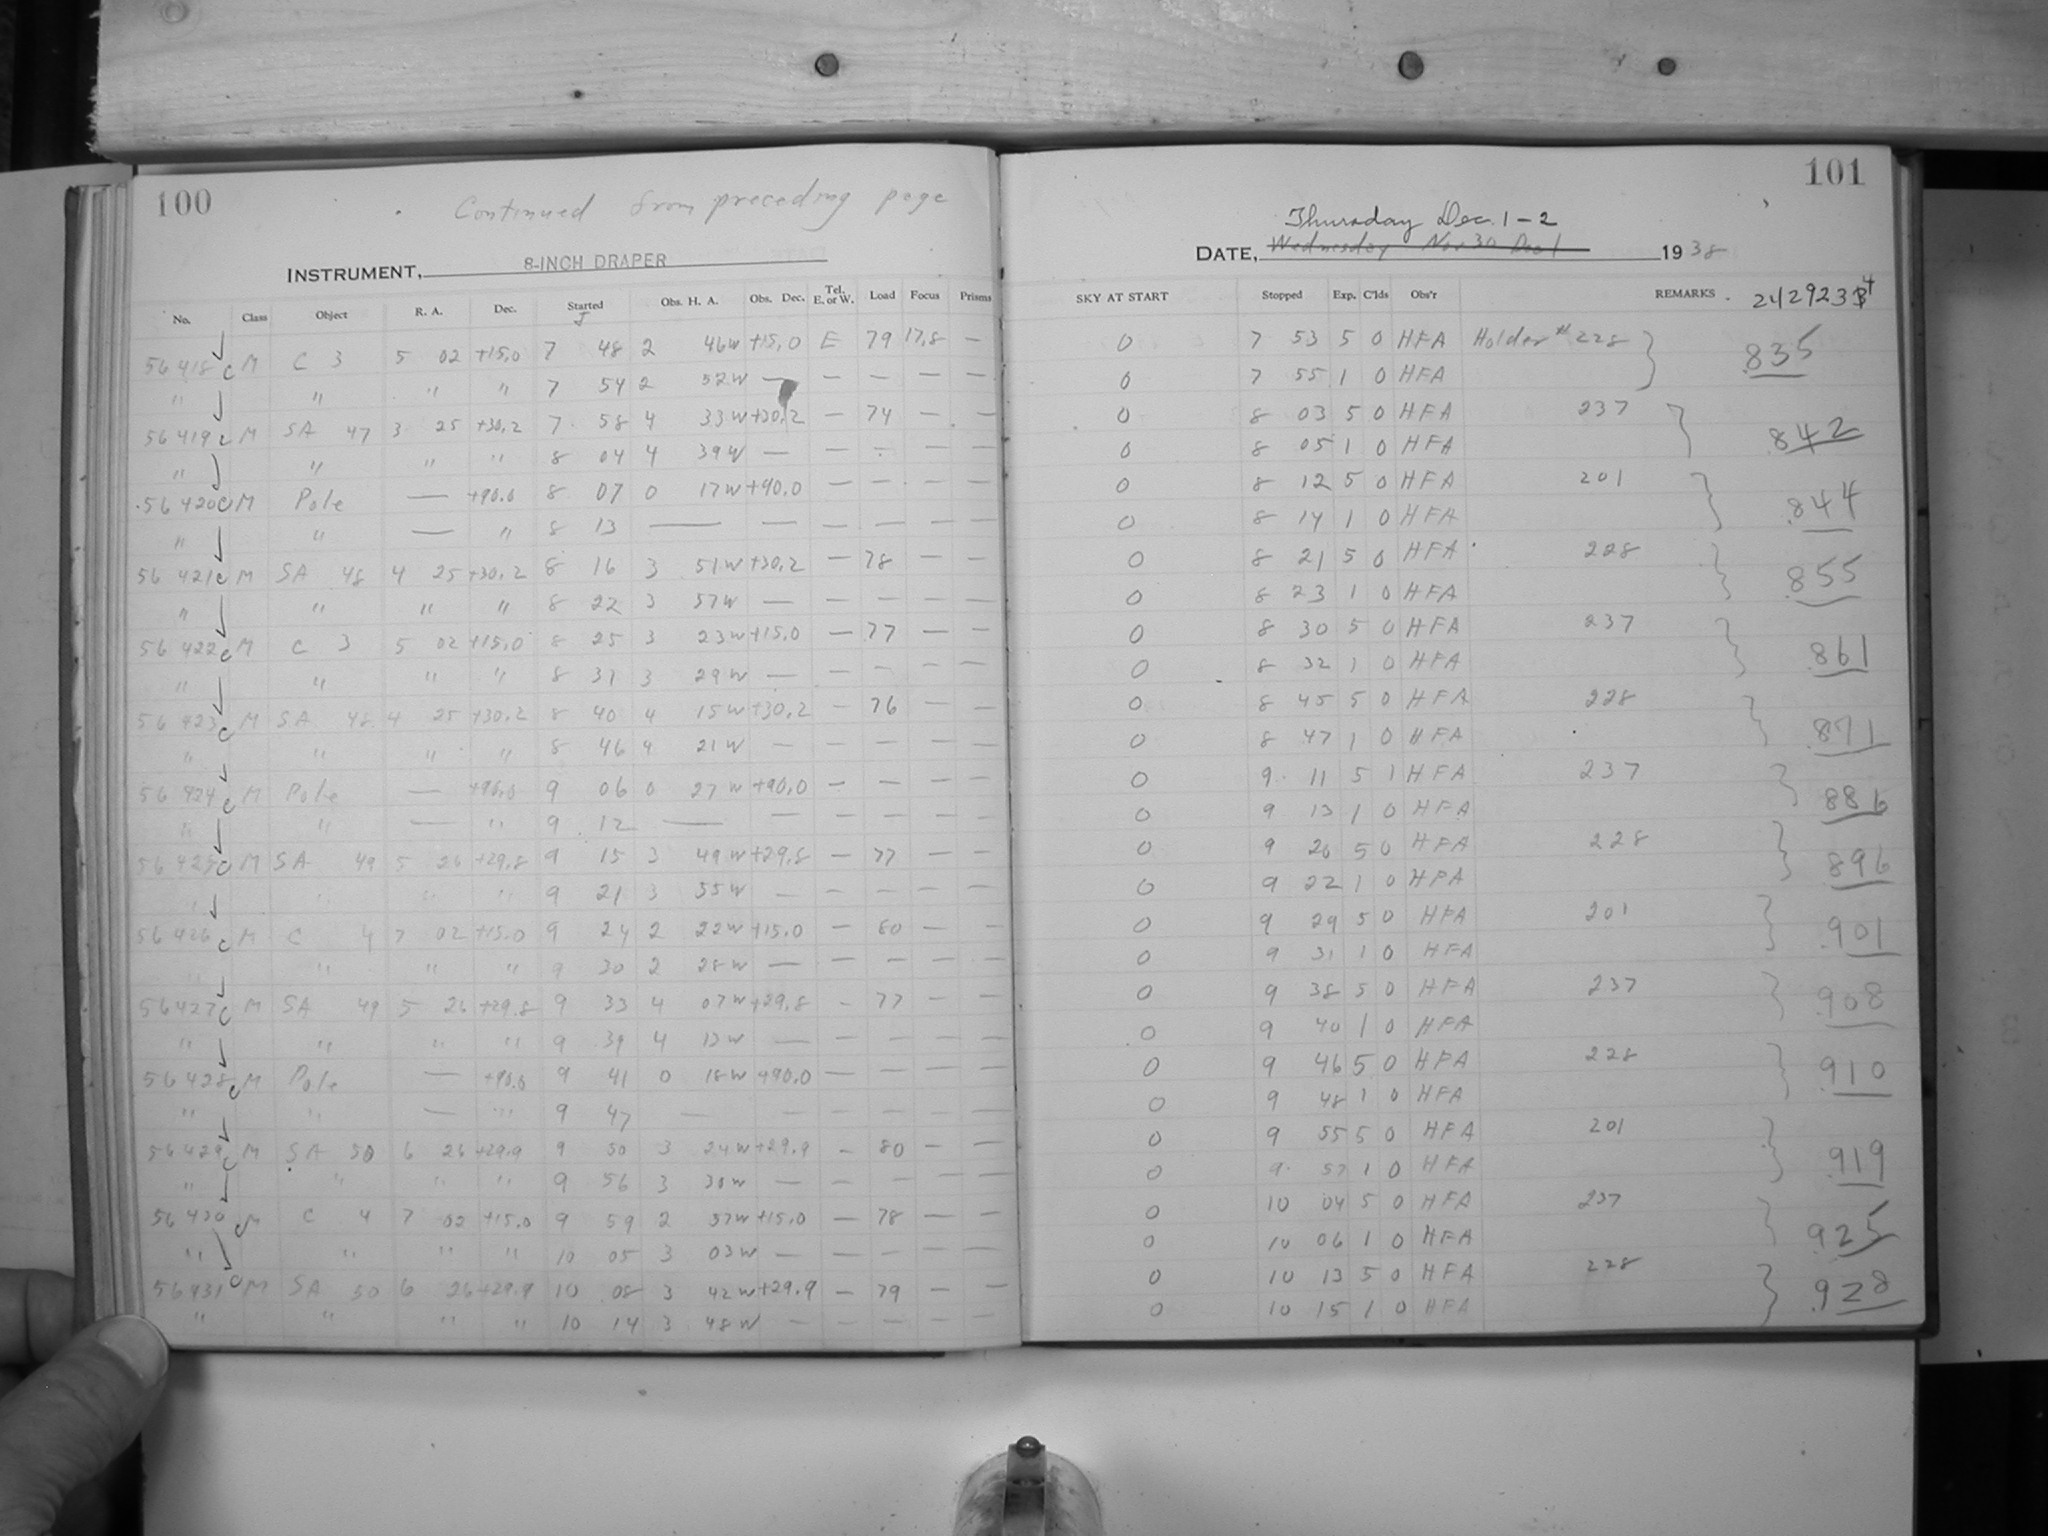 100
Continued from preceding page
INSTRUMENT, 8-INCH DRAPER
No. Class Object R. A. Dec. Started Obs. H. A. Obs. Dec. Tel. E. or W. Load Focus Prisms
J
56 418 c M C 3 5 02 +15,0 7 48 2 46w +15,0 E 79 17,8 —
" " " " 7 54 2 52w — — — — —
56 419 c M SA 47 3 25 +30,2 7 58 4 33w +30,2 — 74 — —
" " " " 8 04 4 39w — — — — —
56 420 c M Pole — +90.0 8 07 0 17w +90.0 — — — —
" " — " 8 13 — — — — — —
56 421 c M SA 48 4 25 +30,2 8 16 3 51w +30,2 — 78 — —
" " " " 8 22 3 57w — — — — —
56 422 c M C 3 5 02 +15,0 8 25 3 23w +15,0 — 77 — —
" " " " 8 31 3 29w — — — — —
56 423 c M SA 48 4 25 +30,2 8 40 4 15w +30,2 — 76 — —
" " " " 8 46 4 21w — — — — —
56 424 c M Pole — +90,0 9 06 0 27w +90,0 — — — —
" " — " 9 12 — — — — — —
56 425 c M SA 49 5 26 +29,8 9 15 3 49w +29,8 — 77 — —
" " " " 9 21 3 55w — — — — —
56 426 c M C 4 7 02 +15,0 9 24 2 22w +15,0 — 80 — —
" " " " 9 30 2 28w — — — — —
56 427 c M SA 49 5 26 +29,8 9 33 4 07w +29,8 — 77 — —
" " " " 9 39 4 13w — — — — —
56 428 c M Pole — +90,0 9 41 0 18w +90,0 — — — —
" " — " 9 47 — — — — — —
56 429 c M SA 50 6 26 +29,9 9 50 3 24w +29,9 — 80 — —
" " " " 9 56 3 30w — — — — —
56 430 c M C 4 7 02 +15,0 9 59 2 57w +15,0 — 78 — —
" " " " 10 05 3 03w — — — — —
56 431 c M SA 50 6 26 +29,9 10 08 3 42w +29,9 — 79 — —
" " " " 10 14 3 48w — — — — —
101
Thursday Dec. 1-2
DATE, Wednesday Nov 30 Dec 1 1938
SKY AT START Stopped Exp. C'lds Obs'r REMARKS 2429234
0 7 53 5 0 HFA Holder #228 835
0 7 55 1 0 HFA
0 8 03 5 0 HFA 237 842
0 8 05 1 0 HFA
0 8 12 5 0 HFA 201 .844
0 8 14 1 0 HFA
0 8 21 5 0 HFA 228 .855
0 8 23 1 0 HFA
0 8 30 5 0 HFA 237 .861
0 8 32 1 0 HFA
0 8 45 5 0 HFA 228 .871
0 8 47 1 0 HFA
0 9 11 5 1 HFA 237 .886
0 9 13 1 0 HFA
0 9 20 5 0 HFA 228 .896
0 9 22 1 0 HFA
0 9 29 5 0 HFA 201 .901
0 9 31 1 0 HFA
0 9 38 5 0 HFA 237 .908
0 9 40 1 0 HFA
0 9 46 5 0 HFA 228 .910
0 9 48 1 0 HFA
0 9 55 5 0 HFA 201 .919
0 9 57 1 0 HFA
0 10 04 5 0 HFA 237 .925
0 10 06 1 0 HFA
0 10 13 5 0 HFA 228 .928
0 10 15 1 0 HFA